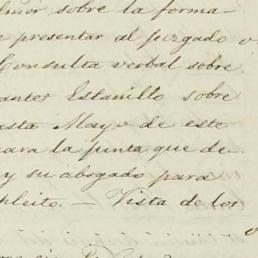 sobre la forma-
presentar al juzgado o
Consulta verbal sobre
Estanillo sobre
asta Mayo de este
para la junta que de
y su abogado para
pleito. — Vista de los